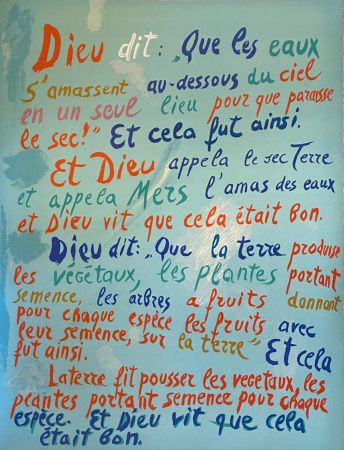 Dieu dit: „Que les eaux
s'amassent au-dessous du ciel
en un seul lieu pour que paraisse
le sec!" Et cela fut ainsi.
Et Dieu appela le sec Terre
et appela Mers l'amas des eaux
et Dieu vit que cela était bon.
Dieu dit: „Que la terre produise
les végétaux, les plantes portant
semence, les arbres a fruits donnant
pour chaque espèce les fruits avec
leur semence, sur la terre" Et cela
fut ainsi.
La terre fit pousser les vegetaux, les
plantes portant semence pour chaque
espèce. Et Dieu vit que cela
était bon.